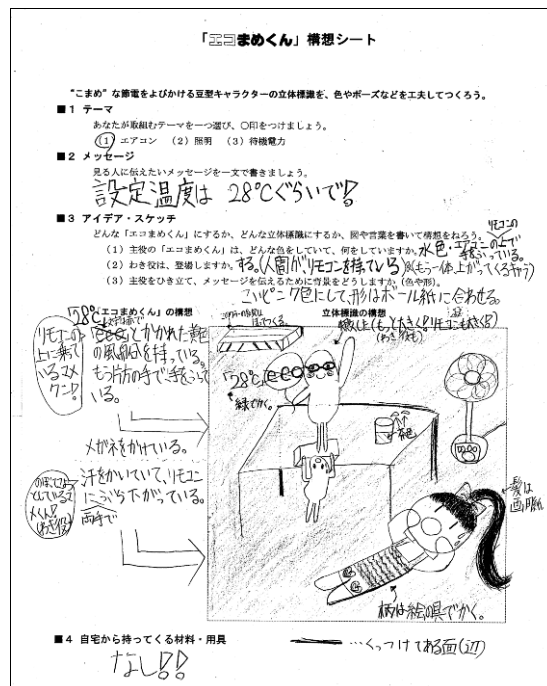 「エコまめくん」構想シート
"こまめ"な節電をよびかける豆型キャラクターの立体標識を、色やポーズなどを工夫してつくろう。
■1 テーマ
あなたが取組むテーマを一つ選び、〇印をつけましょう。
(1) エアコン (2) 照明 (3) 待機電力
■2 メッセージ
見る人に伝えたいメッセージを一文で書きましょう。
設定温度は 28℃ぐらいで!
■3 アイデア・スケッチ
どんな「エコまめくん」にするか、どんな立体標識にするか、図や言葉を書いて構想をねろう。
(1) 主役の「エコまめくん」は、どんな色をしていて、何をしていますか。
水色・
リモコンの
上で
手をふっている。
(2) わき役は、登場しますか。
する。(人間が、リモコンを持っている)
(3) 主役をひき立て、メッセージを伝えるために背景をどうしますか。(色や形)
こいピンク色にして、形はボール紙に合わせる。
「エコまめくん」の構想
立体標識の構想
「28℃
eco」とかかれた黄色
の風船を持っている。
もう片方の手で手をふって
いる。
リモコンの
上に乗って
いるマメ
クン!
メガネをかけている。
汗をかいていて、リモコン
にぶら下がっている。
両手で
「28℃」eco
緑でかく。
茶色
髪は
画用紙
柄は絵の具でかく。
■4 自宅から持ってくる材料・用具
なし!!
…くっつけてある面(辺)